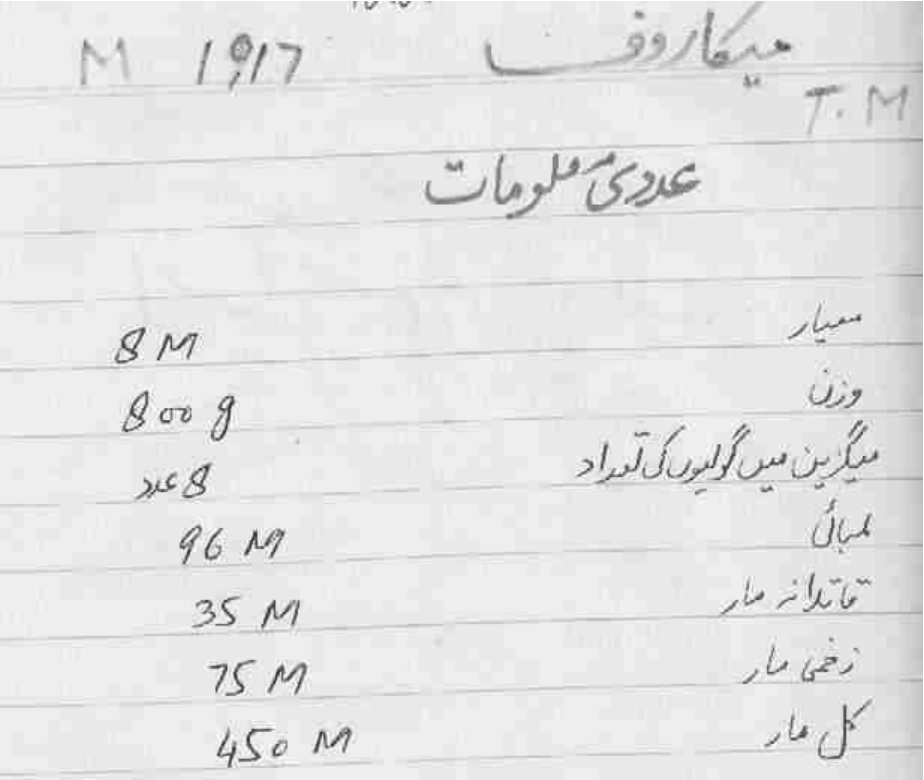 میکاروف 1917 M
T.M
عددی معلومات
معیار 8 M
وزن 800 g
میگزین میں گولیوں کی تعداد 8 عدد
لمبائی 96 M
قاتلانہ مار 35 M
زخمی مار 75 M
کل مار 450 M